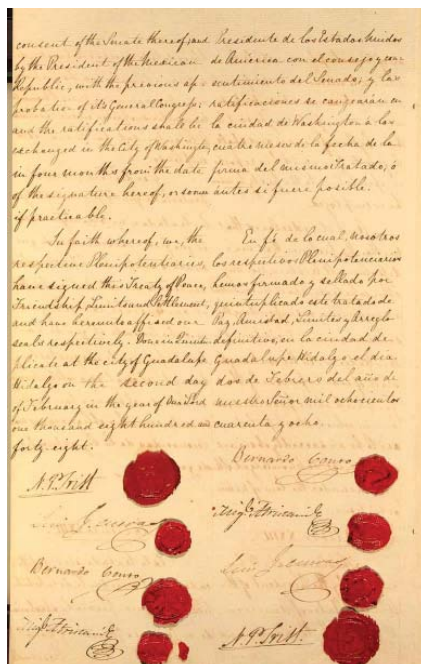 consent of the Senate thereof; and
by the President of the Mexican
Republic, with the previous ap-
probation of its General Congress;
and the ratifications shall be
exchanged in the City of Washington,
in four months from the date
of the signature hereof, or sooner
if practicable.
In faith whereof, we, the
respective Plenipotentiaries,
have signed this Treaty of Peace,
Friendship, Limits and Settlement,
and have hereunto affixed our
seals respectively. Done in Quintu-
plicate at the city of Guadalupe
Hidalgo on the second day
of February in the year of Our Lord
one thousand eight hundred and
forty-eight.
Presidente de los Estados Unidos
de América con el consejo y con-
sentimiento del Senado; y las
ratificaciones se cangearán en
la ciudad de Washington a los
cuatro meses de la fecha de la
firma del mismo Tratado, ó
antes si fuere posible.
En fé de lo cual, nosotros
los respectivos Plenipotenciarios
hemos firmado y sellado por
quintuplicado este tratado de
Paz, Amistad, Límites y Arreglo
definitivo, en la ciudad de
Guadalupe Hidalgo el dia
dos de Febrero del año de
nuestro Señor mil ochocientos
cuarenta y ocho.
N. P. Trist
Luis G. Cuevas
Bernardo Couto
Migl. Atristain
Bernardo Couto
Migl. Atristain
Luis G. Cuevas
N. P. Trist.